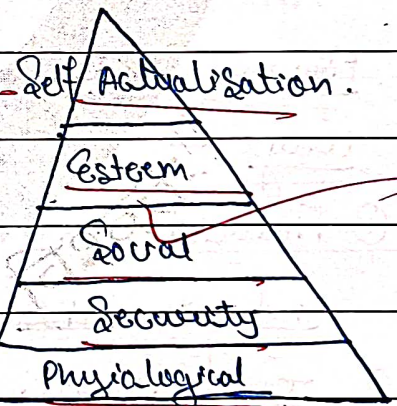 Self Actualisation.
Esteem
Social
Security
Physialogical